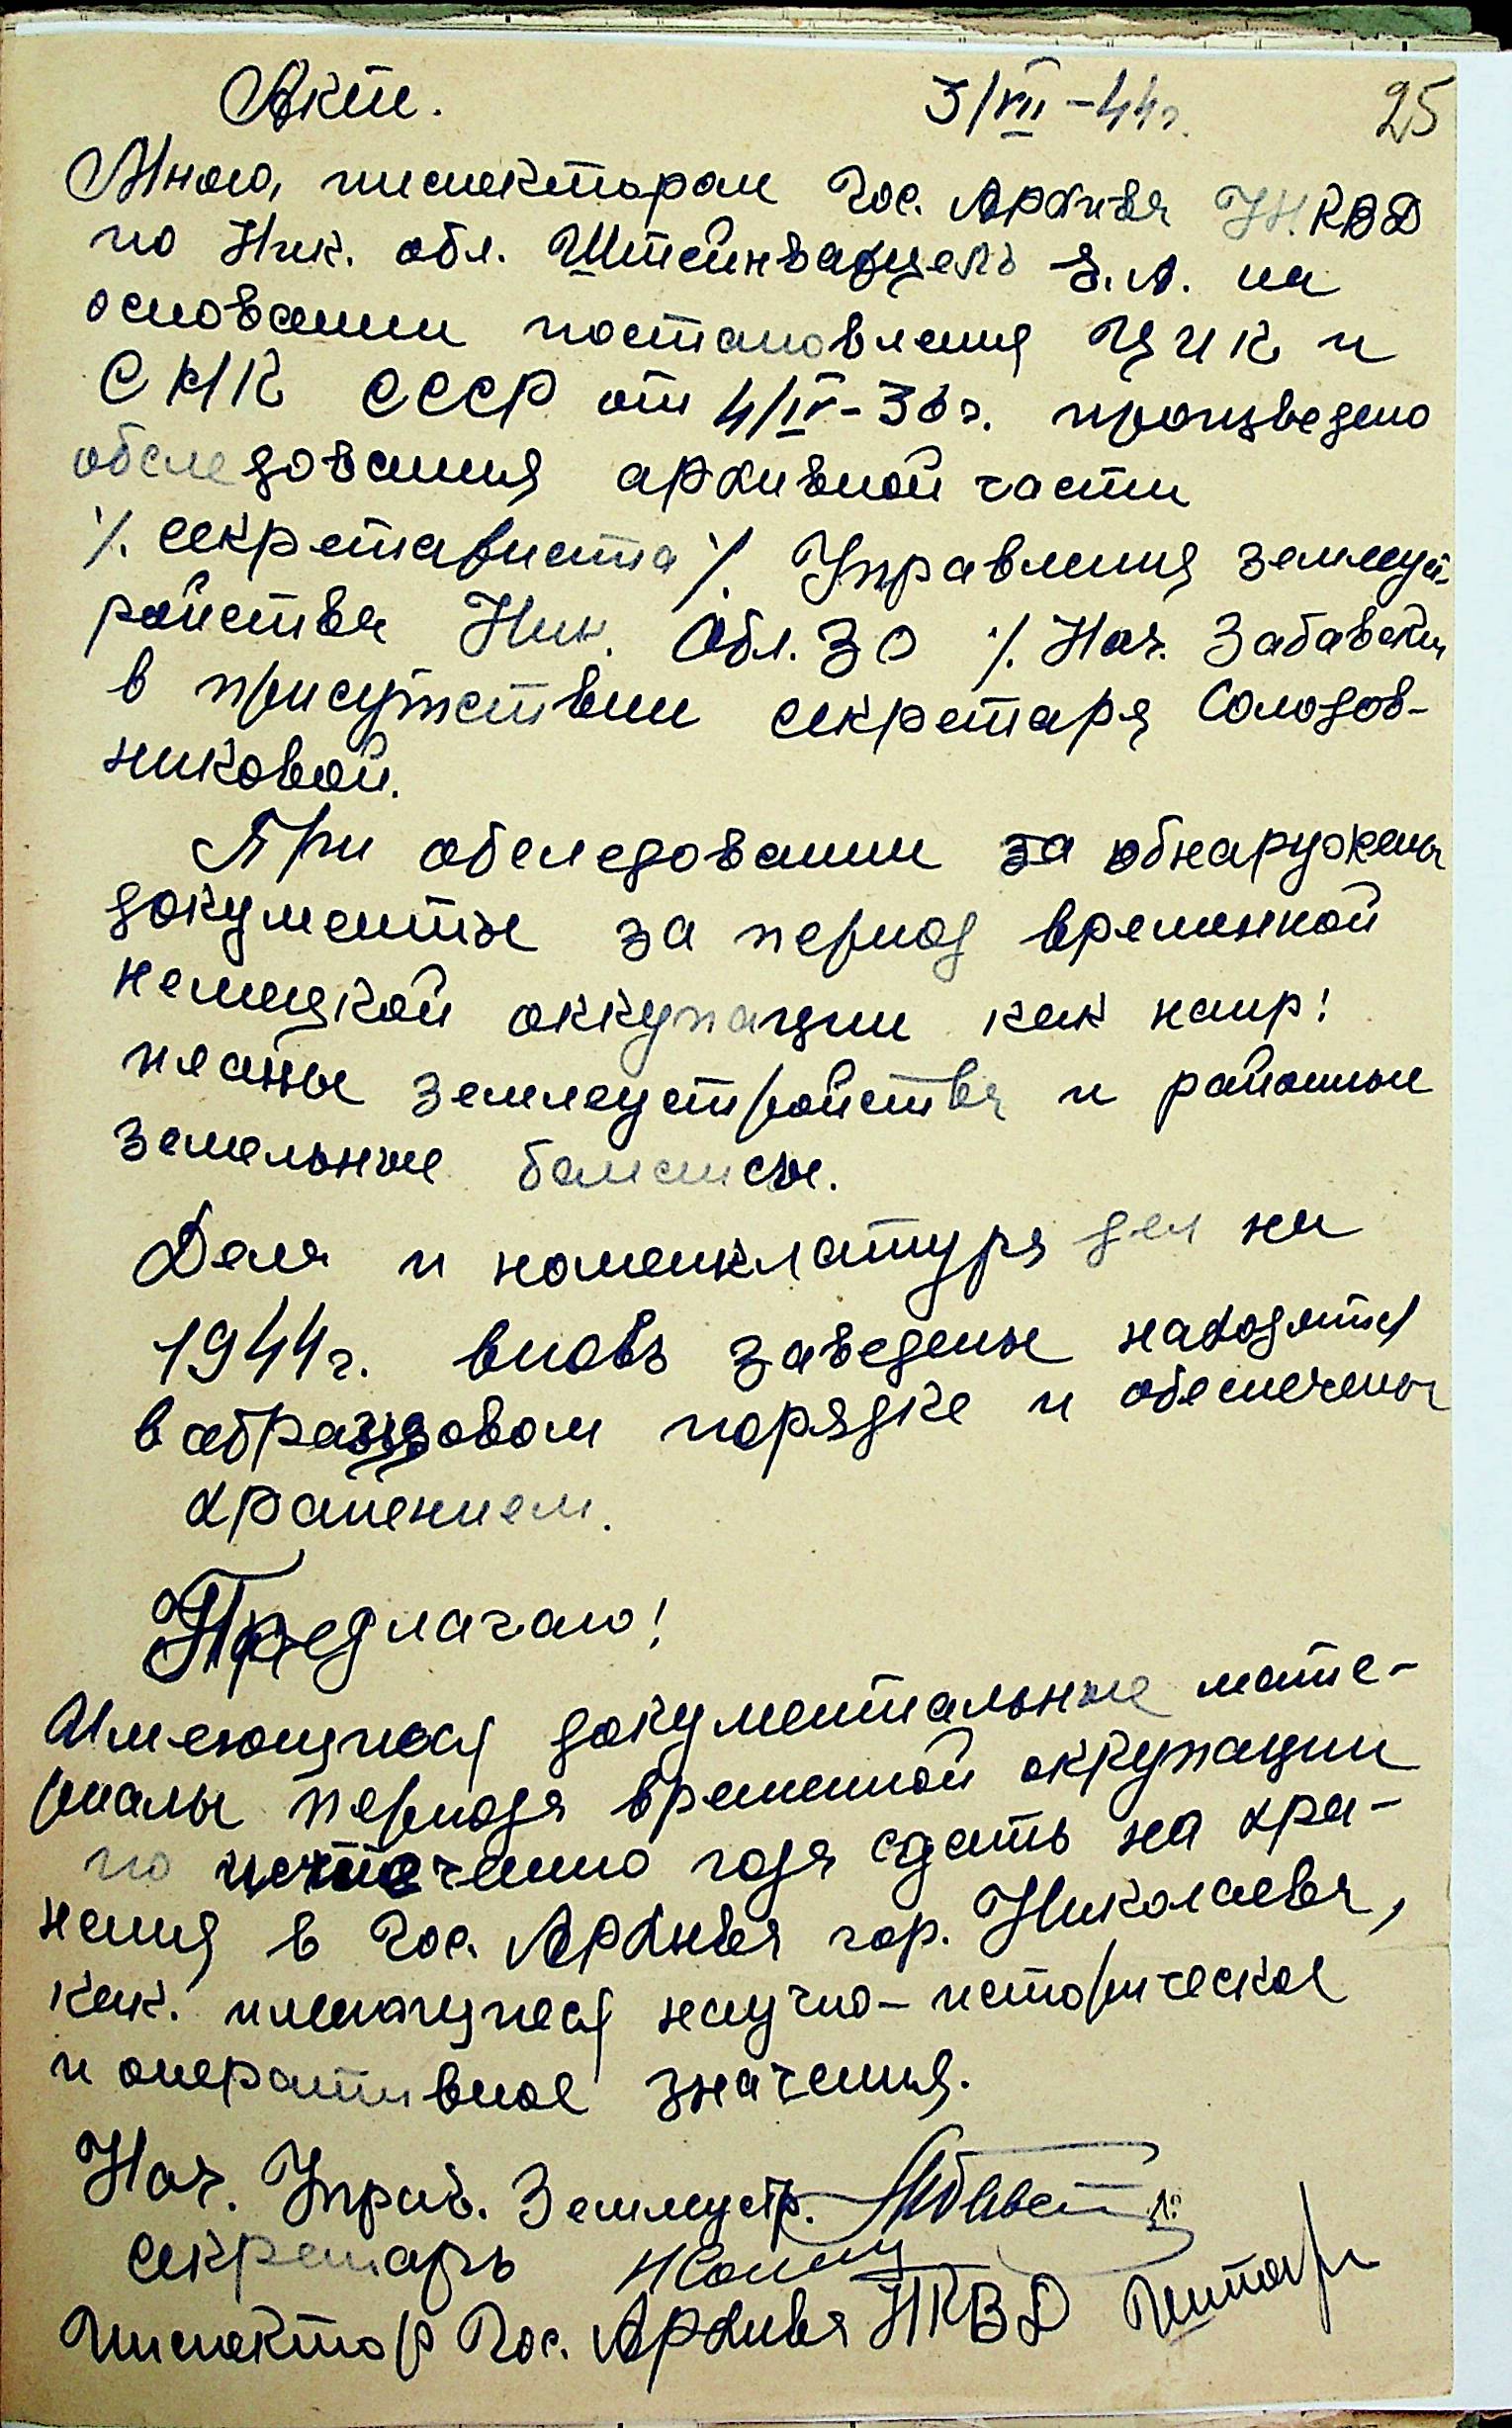 Акт. 3/VIII-44г. 25
Мною, инспектором Гос. Архива НКВД
по Ник. обл. З.А. на
основании постановления ЦИК и
СНК СССР от 4/IV-36г. произведено
обследования архивной части
/. секретариата ./. Управления землеуст-
ройства Ник. Обл. ЗО ./. Нач. Забавский
в присутствии секретаря Солодов-
никовой.
При обследовании за обнаружены
документы за период временной
немецкой оккупации как напр:
планы землеустройства и районные
земельные балансы.
Дела и номенклатура дел на
1944г. вновь заведены находятся
в образцовом порядке и обеспечены
хранением.
Предлагаю!
Имеющиеся документальные мате-
риалы периода временной оккупации
по истечению года сдать на хра-
нения в Гос. Архива гор. Николаева,
как. имеющиеся научно-историческое
и оперативное значения.
Нач. Управ. Землеустр.
Секретарь
Инспектор Гос. Архива НКВД